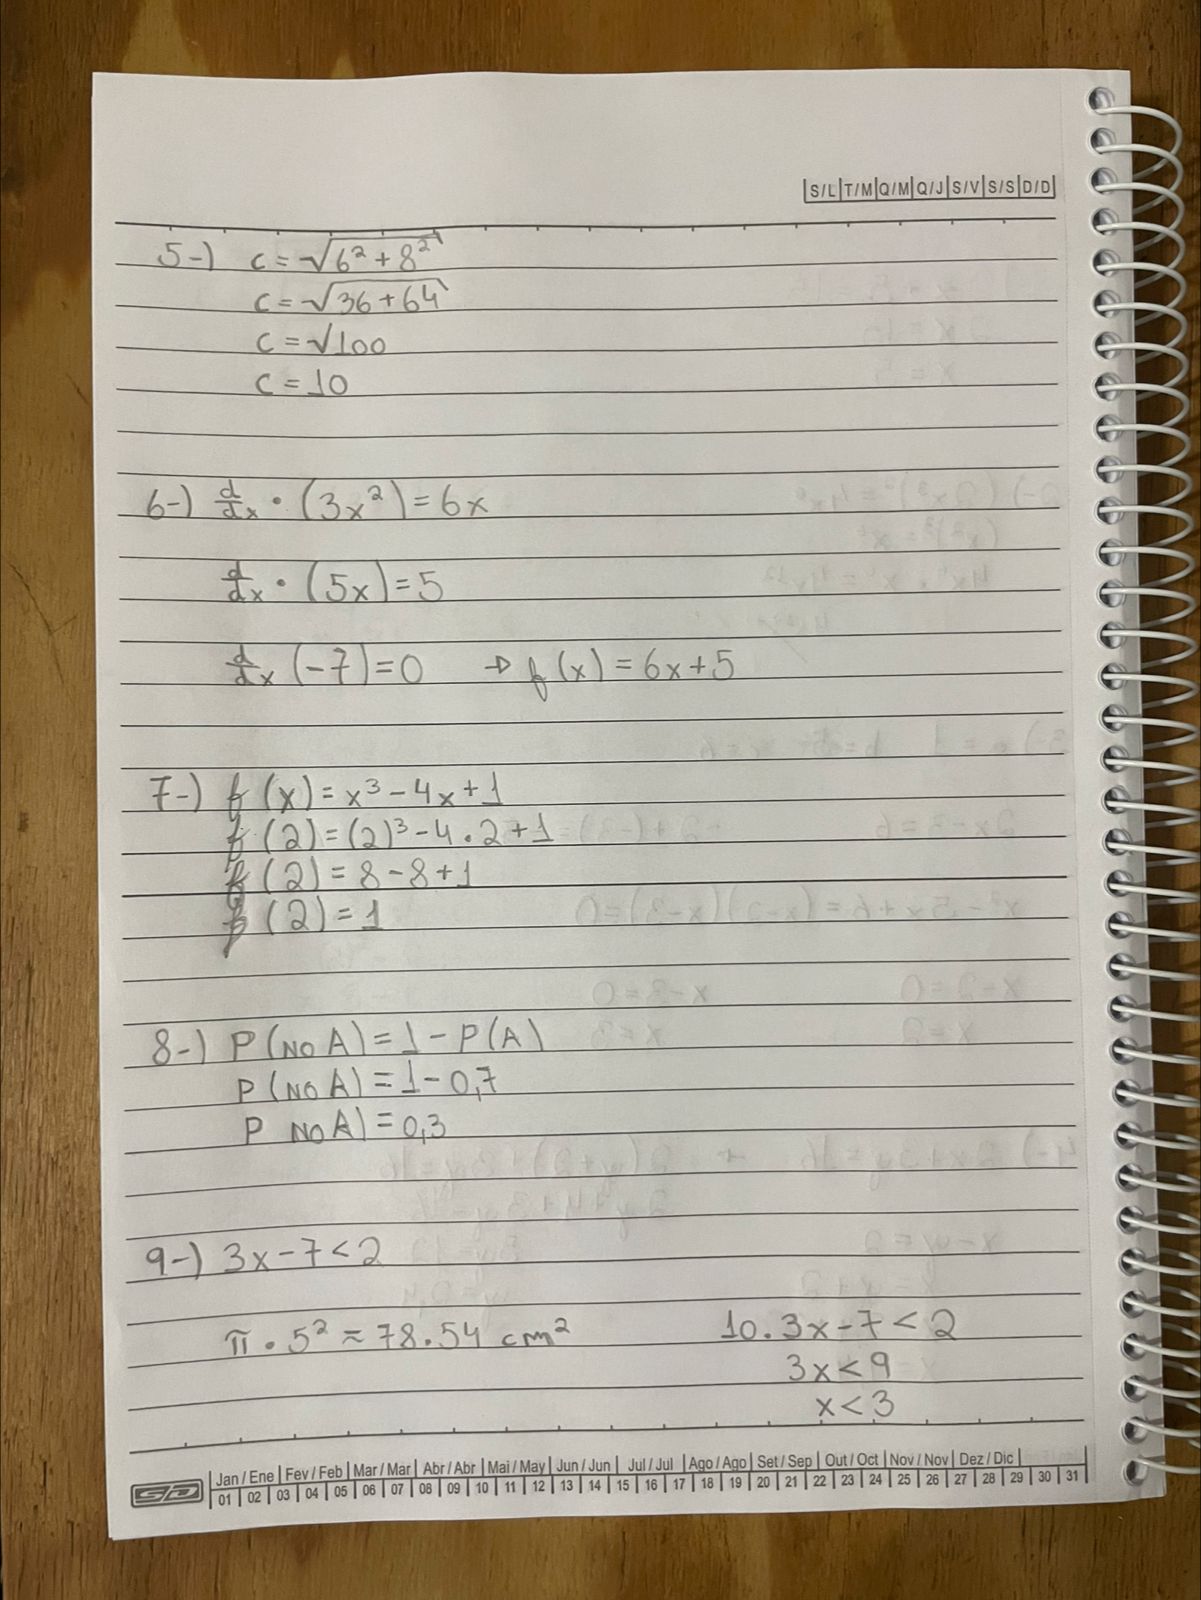 S/L T/M Q/M Q/J S/V S/S D/D
5-) c = √6² + 8²
c = √36 + 64
c = √100
c = 10
6-) d/dx · (3x²) = 6x
d/dx · (5x) = 5
d/dx (-7) = 0 → f(x) = 6x + 5
7-) f(x) = x³ - 4x + 1
f(2) = (2)³ - 4 · 2 + 1
f(2) = 8 - 8 + 1
f(2) = 1
8-) P(NO A) = 1 - P(A)
P(NO A) = 1 - 0,7
P NO A) = 0,3
9-) 3x - 7 < 2
π · 5² ≈ 78.54 cm²
10. 3x - 7 < 2
3x < 9
x < 3
Jan / Ene Fev / Feb Mar / Mar Abr / Abr Mai / May Jun / Jun Jul / Jul Ago / Ago Set / Sep Out / Oct Nov / Nov Dez / Dic
SD 01 02 03 04 05 06 07 08 09 10 11 12 13 14 15 16 17 18 19 20 21 22 23 24 25 26 27 28 29 30 31